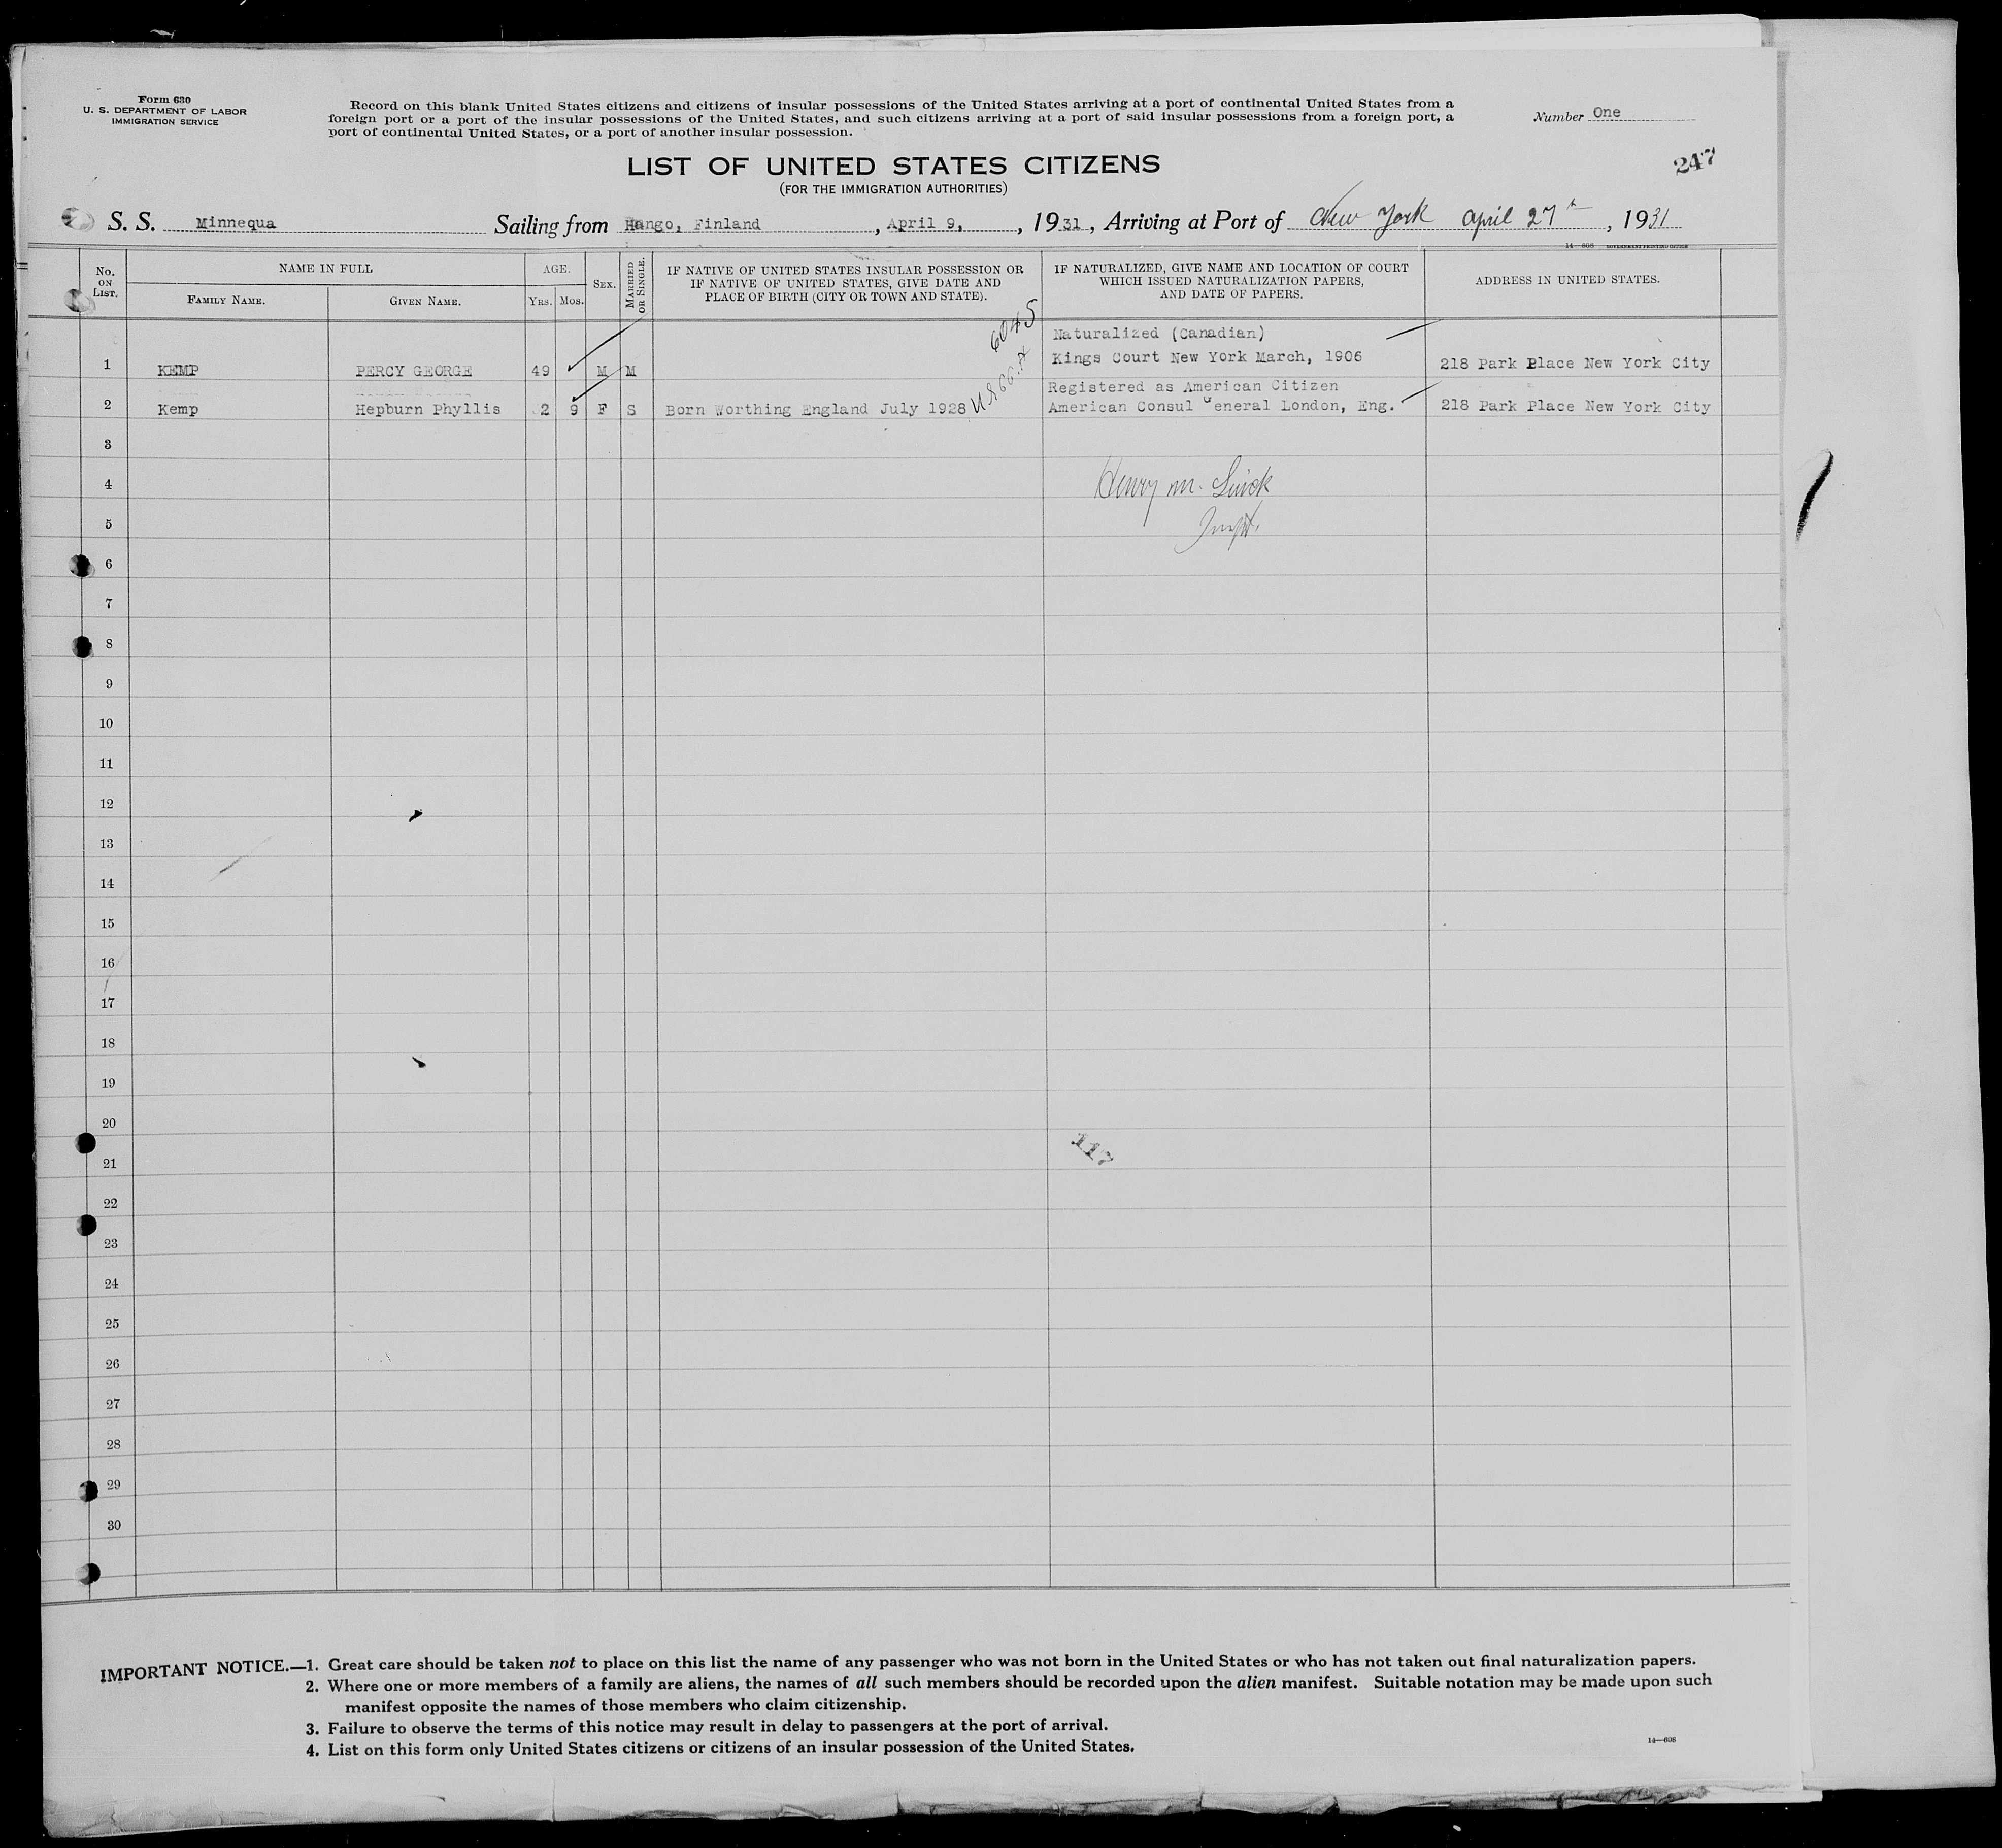 Form 630
U. S. DEPARTMENT OF LABOR
IMMIGRATION SERVICE
Record on this blank United States citizens and citizens of insular possessions of the United States arriving at a port of continental United States from a
foreign port or a port of the insular possessions of the United States, and such citizens arriving at a port of said insular possessions from a foreign port, a
port of continental United States, or a port of another insular possession.
Number One
247
LIST OF UNITED STATES CITIZENS
(FOR THE IMMIGRATION AUTHORITIES)
S. S. Minnequa Sailing from Hango, Finland, April 9, , 1931, Arriving at Port of New York April 27th, 1931
14—608 GOVERNMENT PRINTING OFFICE
No. ON LIST.
NAME IN FULL
FAMILY NAME.
GIVEN NAME.
AGE.
YRS.
MOS.
SEX.
MARRIED OR SINGLE.
IF NATIVE OF UNITED STATES INSULAR POSSESSION OR
IF NATIVE OF UNITED STATES, GIVE DATE AND
PLACE OF BIRTH (CITY OR TOWN AND STATE).
IF NATURALIZED, GIVE NAME AND LOCATION OF COURT
WHICH ISSUED NATURALIZATION PAPERS,
AND DATE OF PAPERS.
ADDRESS IN UNITED STATES.
6045
Naturalized (Canadian)
1 KEMP PERCY GEORGE 49 M M Kings Court New York March, 1906 218 Park Place New York City
Registered as American Citizen
2 Kemp Hepburn Phyllis 2 9 F S Born Worthing England July 1928 American Consul General London, Eng. 218 Park Place New York City
3
4
Henry M.
5
6
7
8
9
10
11
12
13
14
15
16
17
18
19
20
117
21
22
23
24
25
26
27
28
29
30
IMPORTANT NOTICE.—1. Great care should be taken not to place on this list the name of any passenger who was not born in the United States or who has not taken out final naturalization papers.
2. Where one or more members of a family are aliens, the names of all such members should be recorded upon the alien manifest. Suitable notation may be made upon such
manifest opposite the names of those members who claim citizenship.
3. Failure to observe the terms of this notice may result in delay to passengers at the port of arrival.
4. List on this form only United States citizens or citizens of an insular possession of the United States.
14—608